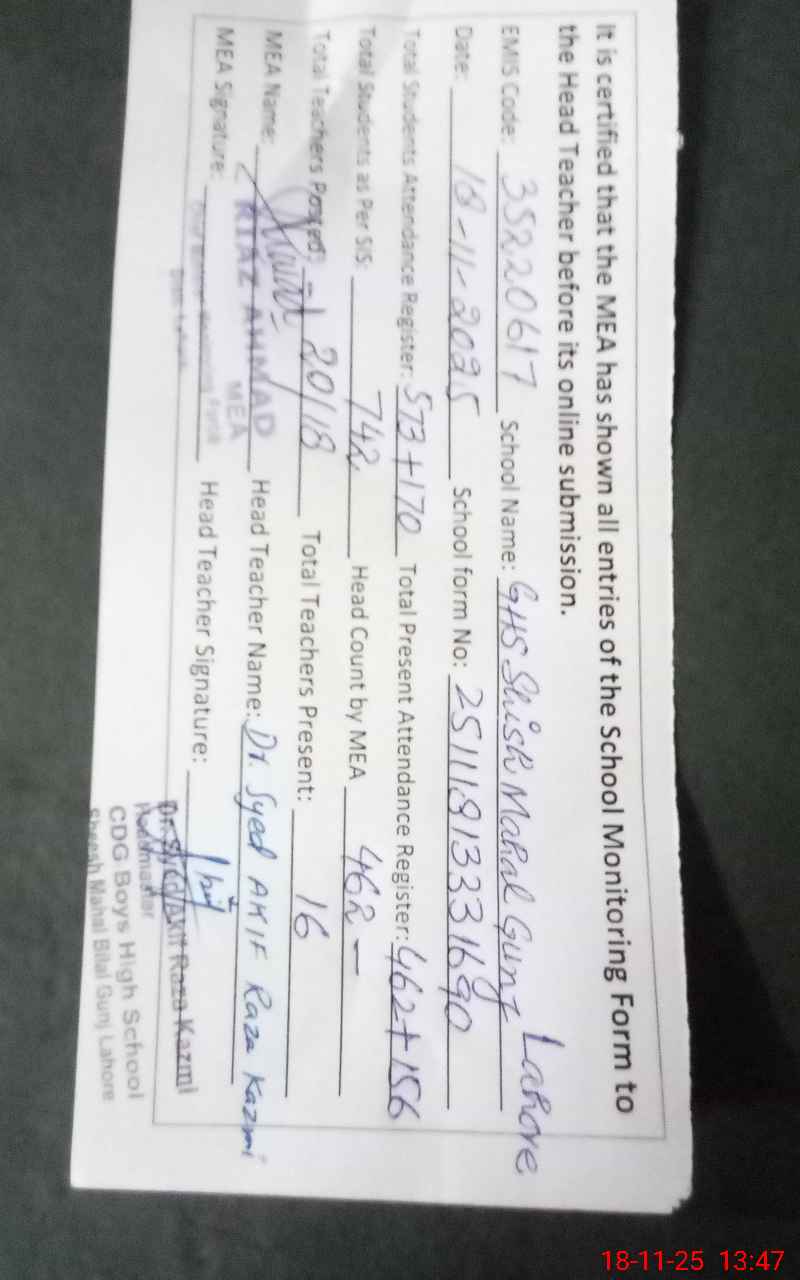 It is certified that the MEA has shown all entries of the School Monitoring Form to
the Head Teacher before its online submission.
EMIS Code: 35220617 School Name: GHS Shish Mahal Gunj Lahore
Date: 18-11-2025 School form No: 25111813331690
Total Students Attendance Register: 573+170 Total Present Attendance Register: 462+156
Total Students as Per SIS: 742 Head Count by MEA 462-
Total Teachers Posted: 20/18 Total Teachers Present: 16
MEA Name: RIAZ AHMAD Head Teacher Name: Dr. Syed AKIF Raza Kazmi
MEA
MEA Signature: Head Teacher Signature:
Dr. Syed Akif Raza Kazmi
Headmaster
CDG Boys High School
Sheesh Mahal Bilal Gunj Lahore
18-11-25 13:47